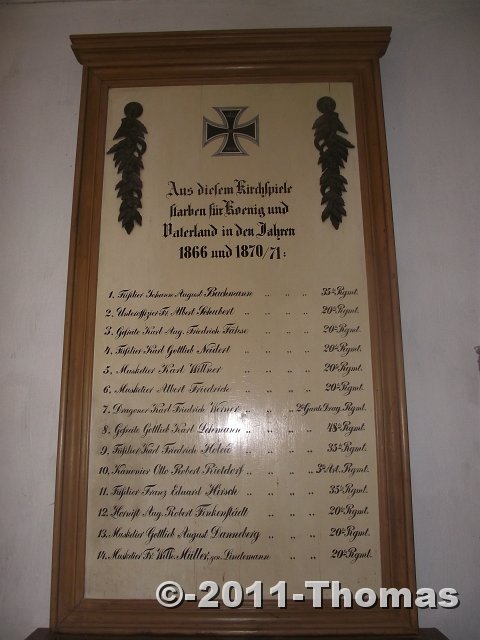 Aus diesem Kirchspiele
starben für Koenig und
Vaterland in den Jahren
1866 und 1870/71:
1. Füsilier Johann August Bachmann „ „ „ 35te Rgmt.
2. Unteroffizier Fr. Albert Schubert „ „ „ 20te Rgmt.
3. Gefreite Karl Aug. Friedrich Fabse „ „ „ 20te Rgmt.
4. Füsilier Karl Gottlieb Neidert „ „ „ „ 20te Rgmt.
5. Musketier Karl Willner „ „ „ „ 20te Rgmt.
6. Musketier Albert Friedrich „ „ „ „ 20te Rgmt.
7. Dragoner Karl Friedrich Werner „ „ 2te Garde Drag. Rgmt.
8. Gefreite Gottlieb Karl Lehmann „ „ „ 48te Rgmt.
9. Füsilier Karl Friedrich „ „ „ 35te Rgmt.
10. Kanonier Otto Robert Rietdorf „ „ „ 3te Art. Rgmt.
11. Füsilier Franz Eduard Hirsch „ „ „ 35te Rgmt.
12. Hornist Aug. Robert Finkenstädt „ „ 20te Rgmt.
13. Musketier Gottlieb August Danneberg „ „ 20te Rgmt.
14. Musketier Fr. Wilh. Müller, gen. Lindemann „ „ 20te Rgmt.
©-2011-Thomas